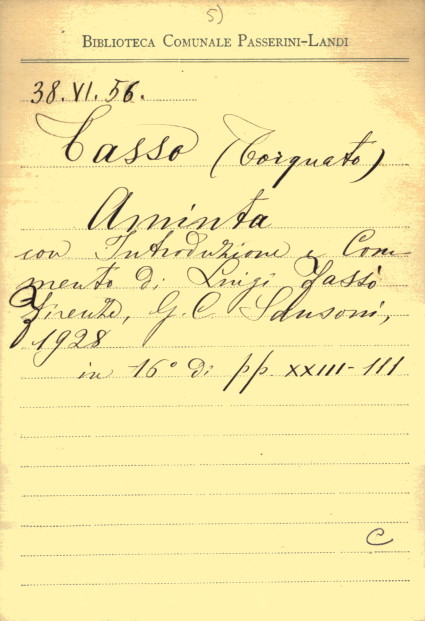 5)
BIBLIOTECA COMUNALE PASSERINI-LANDI
38.VI.56.
Tasso (Torquato)
Aminta
con Introduzione e Com-
mento di Luigi Fassò
Firenze, G. C. Sansoni,
1928
in 16° di pp. XXIII-111
C